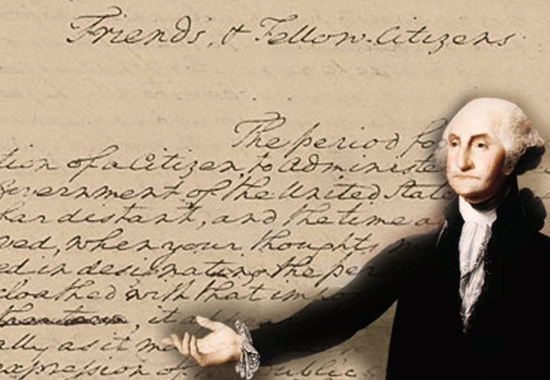 Friends, & Fellow-Citizens
The period fo
tion of a Citizen, to administe
overnment of the United Stat
far distant, and the time a
ved, when your thoughts
ed in designating the per
cloathed with that impo
it appea
ally as it m
expression of public